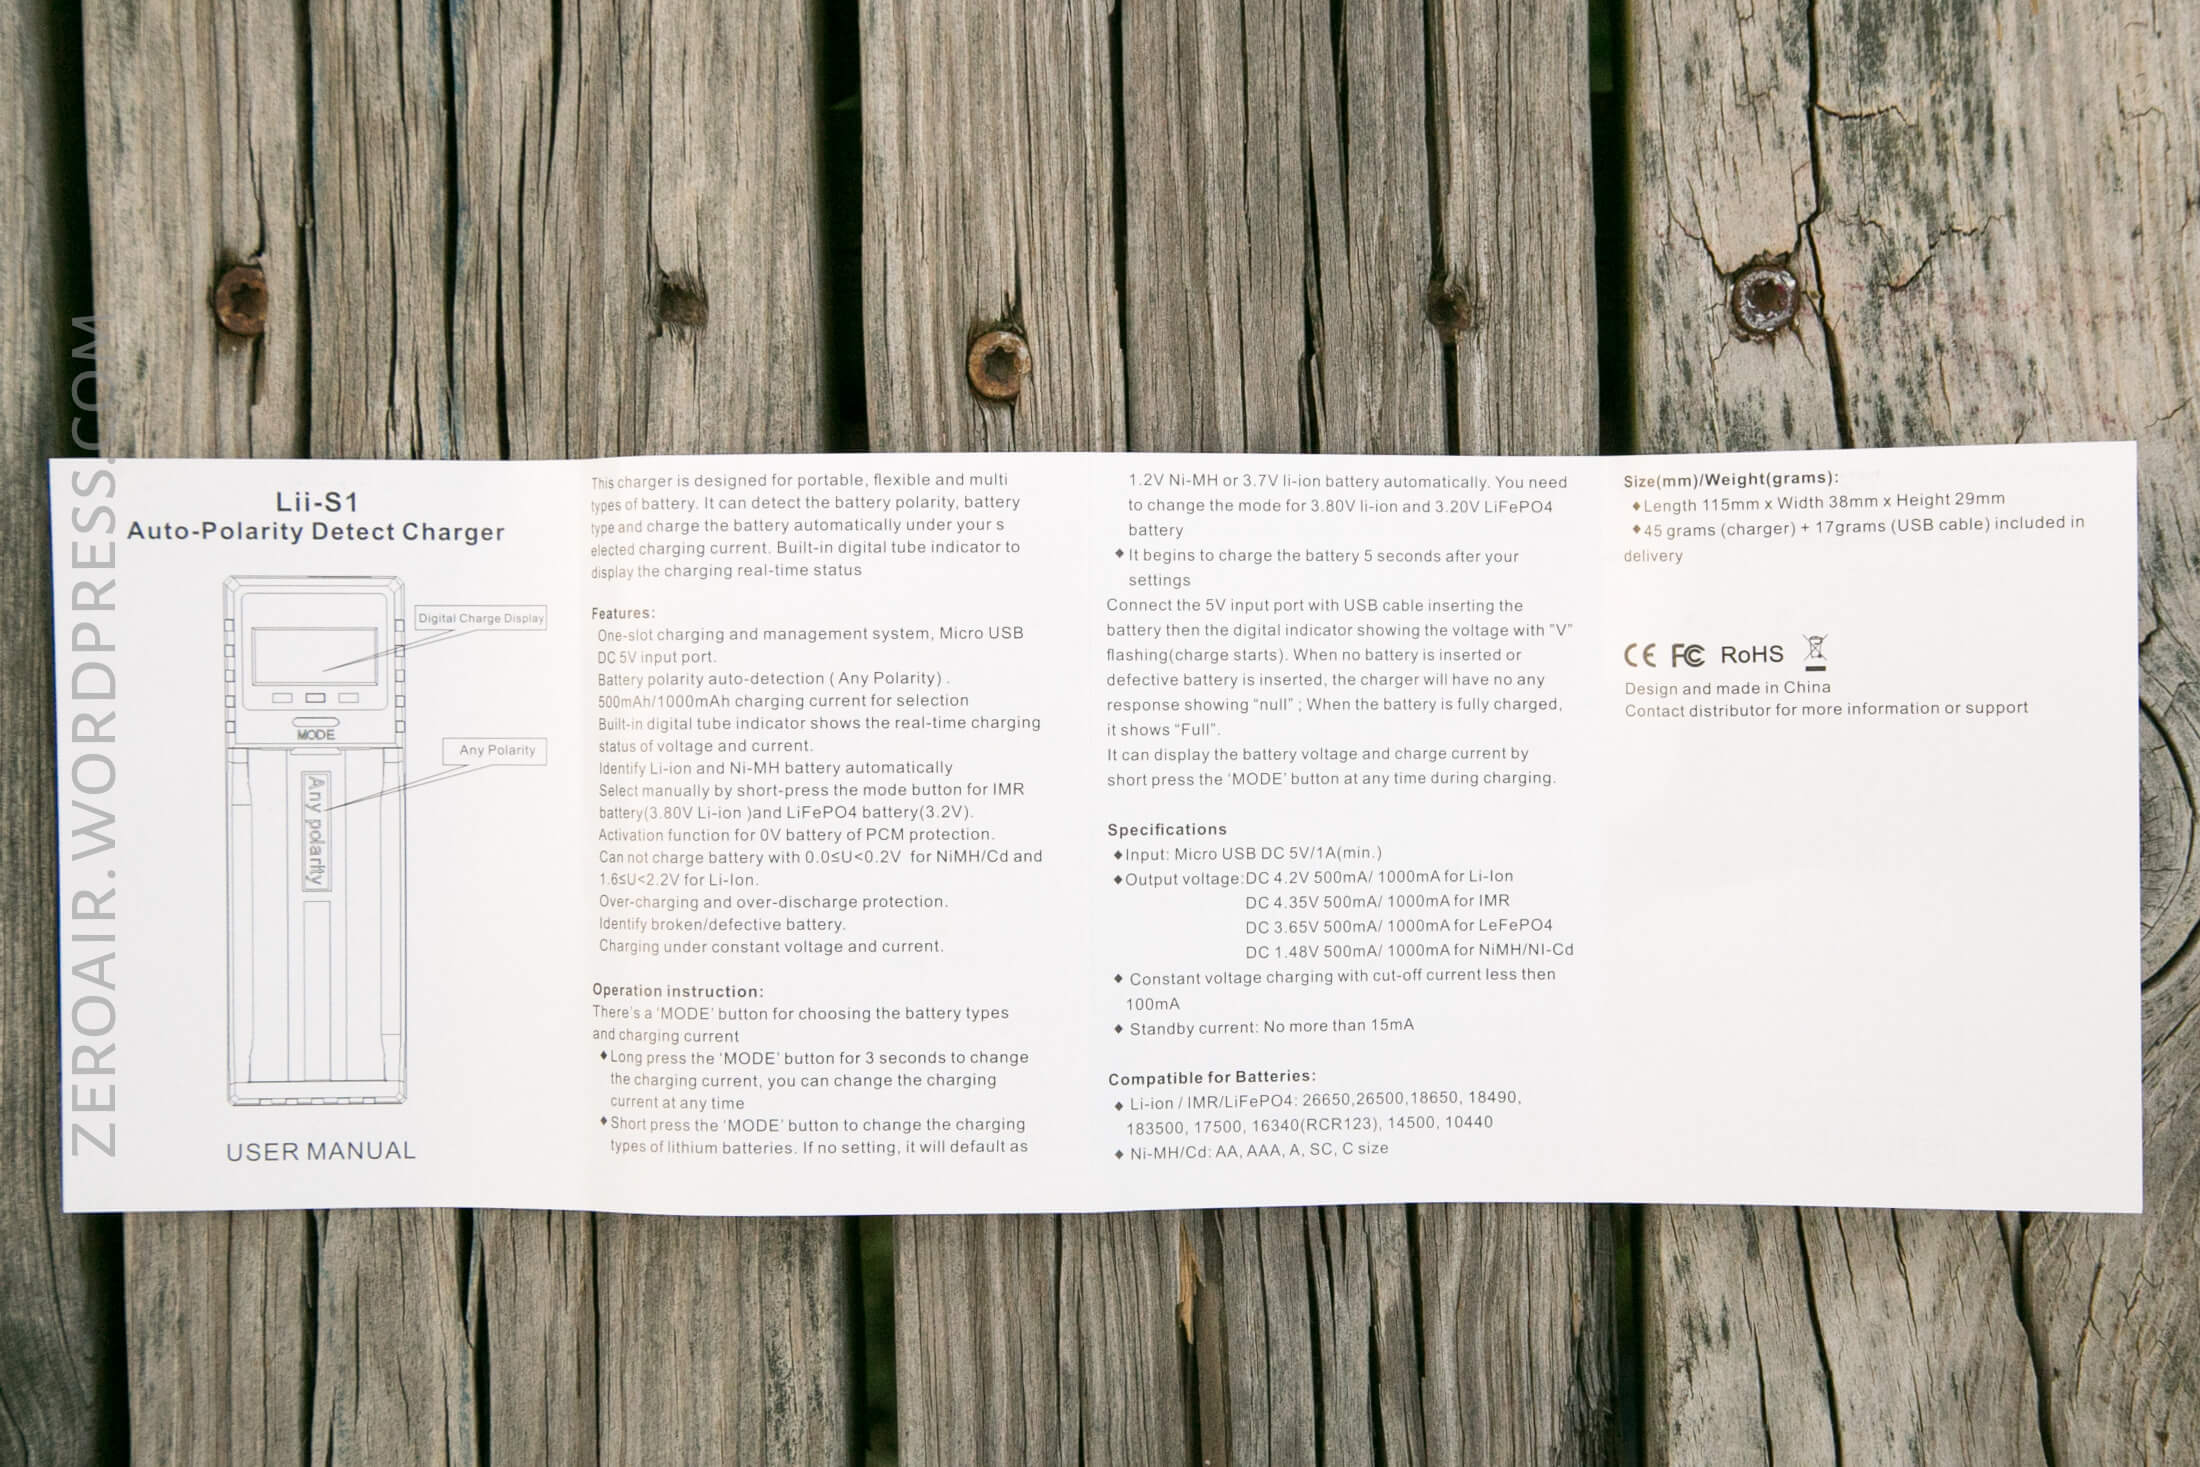 ZEROAIR.WORDPRESS.COM
Lii-S1
Auto-Polarity Detect Charger
Digital Charge Display
MODE
Any Polarity
Any polarity
USER MANUAL
This charger is designed for portable, flexible and multi
types of battery. It can detect the battery polarity, battery
type and charge the battery automatically under your s
elected charging current. Built-in digital tube indicator to
display the charging real-time status
Features:
One-slot charging and management system, Micro USB
DC 5V input port.
Battery polarity auto-detection ( Any Polarity) .
500mAh/1000mAh charging current for selection
Built-in digital tube indicator shows the real-time charging
status of voltage and current.
Identify Li-ion and Ni-MH battery automatically
Select manually by short-press the mode button for IMR
battery(3.80V Li-ion )and LiFePO4 battery(3.2V).
Activation function for 0V battery of PCM protection.
Can not charge battery with 0.0≤U<0.2V for NiMH/Cd and
1.6≤U<2.2V for Li-Ion.
Over-charging and over-discharge protection.
Identify broken/defective battery.
Charging under constant voltage and current.
Operation instruction:
There's a 'MODE' button for choosing the battery types
and charging current
◆Long press the 'MODE' button for 3 seconds to change
the charging current, you can change the charging
current at any time
◆Short press the 'MODE' button to change the charging
types of lithium batteries. If no setting, it will default as
1.2V Ni-MH or 3.7V li-ion battery automatically. You need
to change the mode for 3.80V li-ion and 3.20V LiFePO4
battery
◆ It begins to charge the battery 5 seconds after your
settings
Connect the 5V input port with USB cable inserting the
battery then the digital indicator showing the voltage with "V"
flashing(charge starts). When no battery is inserted or
defective battery is inserted, the charger will have no any
response showing "null" ; When the battery is fully charged,
it shows "Full".
It can display the battery voltage and charge current by
short press the 'MODE' button at any time during charging.
Specifications
◆Input: Micro USB DC 5V/1A(min.)
◆Output voltage:DC 4.2V 500mA/ 1000mA for Li-Ion
DC 4.35V 500mA/ 1000mA for IMR
DC 3.65V 500mA/ 1000mA for LeFePO4
DC 1.48V 500mA/ 1000mA for NiMH/NI-Cd
◆ Constant voltage charging with cut-off current less then
100mA
◆ Standby current: No more than 15mA
Compatible for Batteries:
◆ Li-ion / IMR/LiFePO4: 26650,26500,18650, 18490,
183500, 17500, 16340(RCR123), 14500, 10440
◆ Ni-MH/Cd: AA, AAA, A, SC, C size
Size(mm)/Weight(grams):
◆Length 115mm x Width 38mm x Height 29mm
◆45 grams (charger) + 17grams (USB cable) included in
delivery
CE FC RoHS
Design and made in China
Contact distributor for more information or support